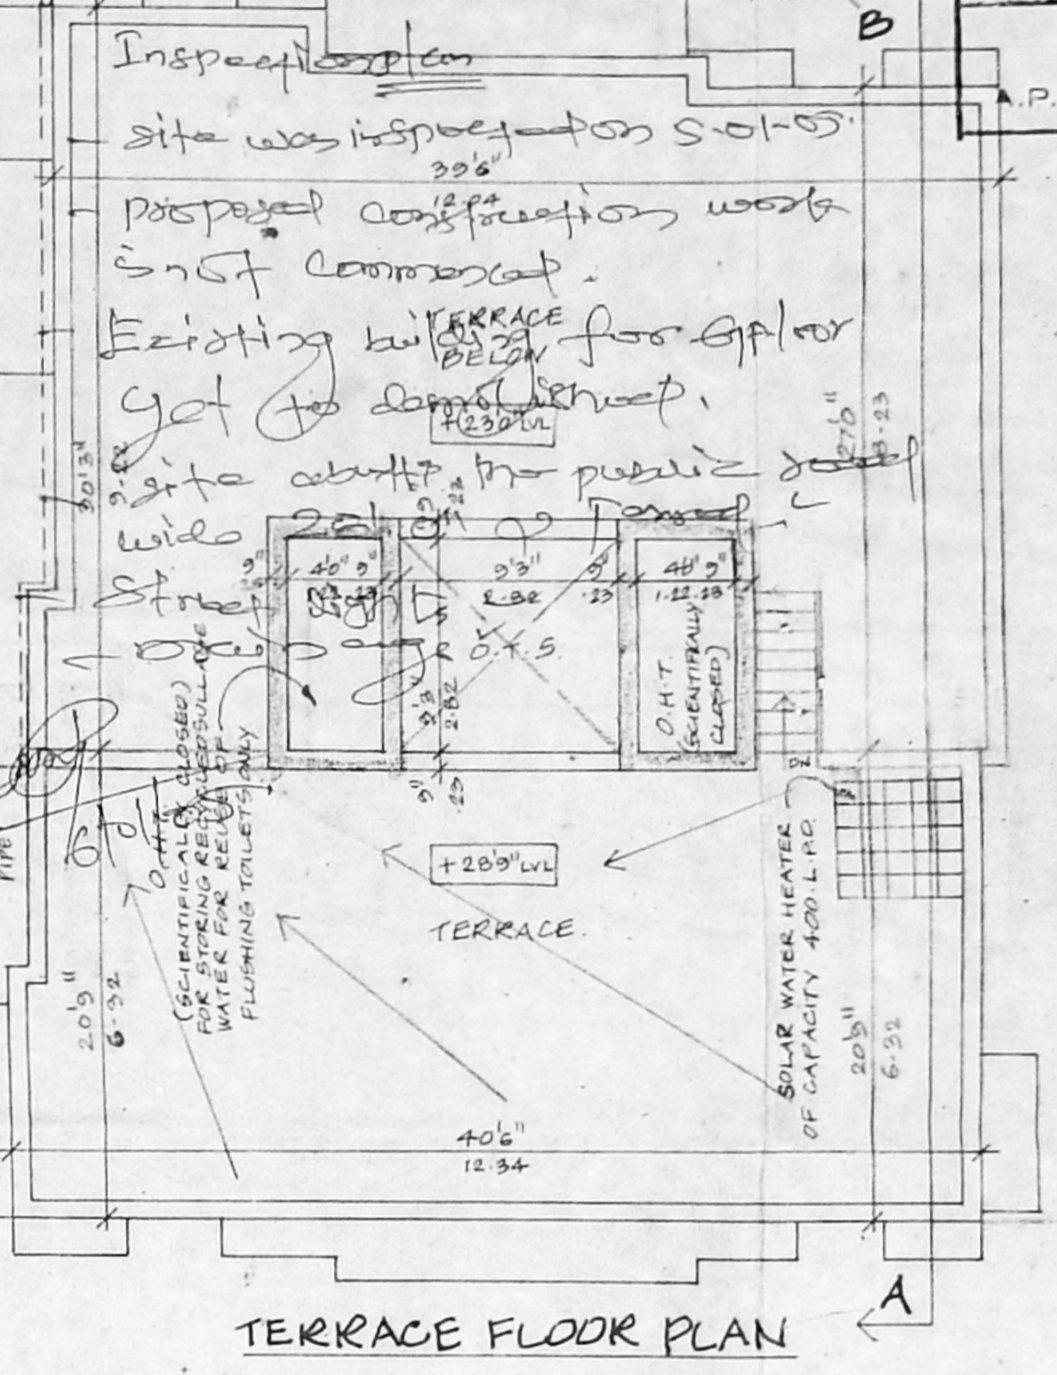 B
A.P.
Inspection plan
- site was inspected on 5-01-05.
39'6"
12.04
- proposed construction work
is not commenced.
TERRACE
BELOW
Existing building for GF/or
yet to demolished.
+(23'0" LVL
27'6"
8.23
30'3"
9.22
site abutts the public road
wide
Formed
9" 4'0" 9" 9'3" 9" 4'0" 9"
2.82 .23 1.22 .23
Street light
- Drainage
O.T.S.
9'3"
2.82
9"
.23
O.H.T.
(SCIENTIFICALLY
CLOSED)
O.H.T.
(SCIENTIFICALLY CLOSED)
FOR STORING RECYCLED SULLAGE
WATER FOR REUSE OF
FLUSHING TOILETS ONLY
PIPE
+28'9" LVL
TERRACE.
SOLAR WATER HEATER
OF CAPACITY 400 L.P.D.
20'9"
6.32
20'9"
6.32
40'6"
12.34
A
TERRACE FLOOR PLAN